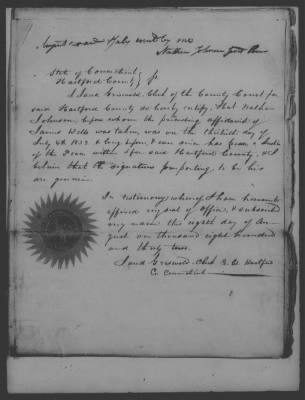 August
Nathan Johnson Just Peace
State of Connecticut
Hartford County } ss
I Jared Griswold, Clerk of the County Court for
said Hartford County do hereby certify, that Nathan
Johnson, before whom the preceding affidavit of
James Wells was taken, was on the thirtieth day of
July AD 1832 & long before, & ever since has been a Justice
of the Peace within & for said Hartford County, & I
believe that the signature purporting to be his
are genuine
In testimony whereof, I have hereunto
affixed my seal of office, & subscribed
my name this eighth day of Au-
gust one thousand eight hundred
and thirty two.
Jared Griswold, Clerk C. Ct. Hartford
C. Connecticut